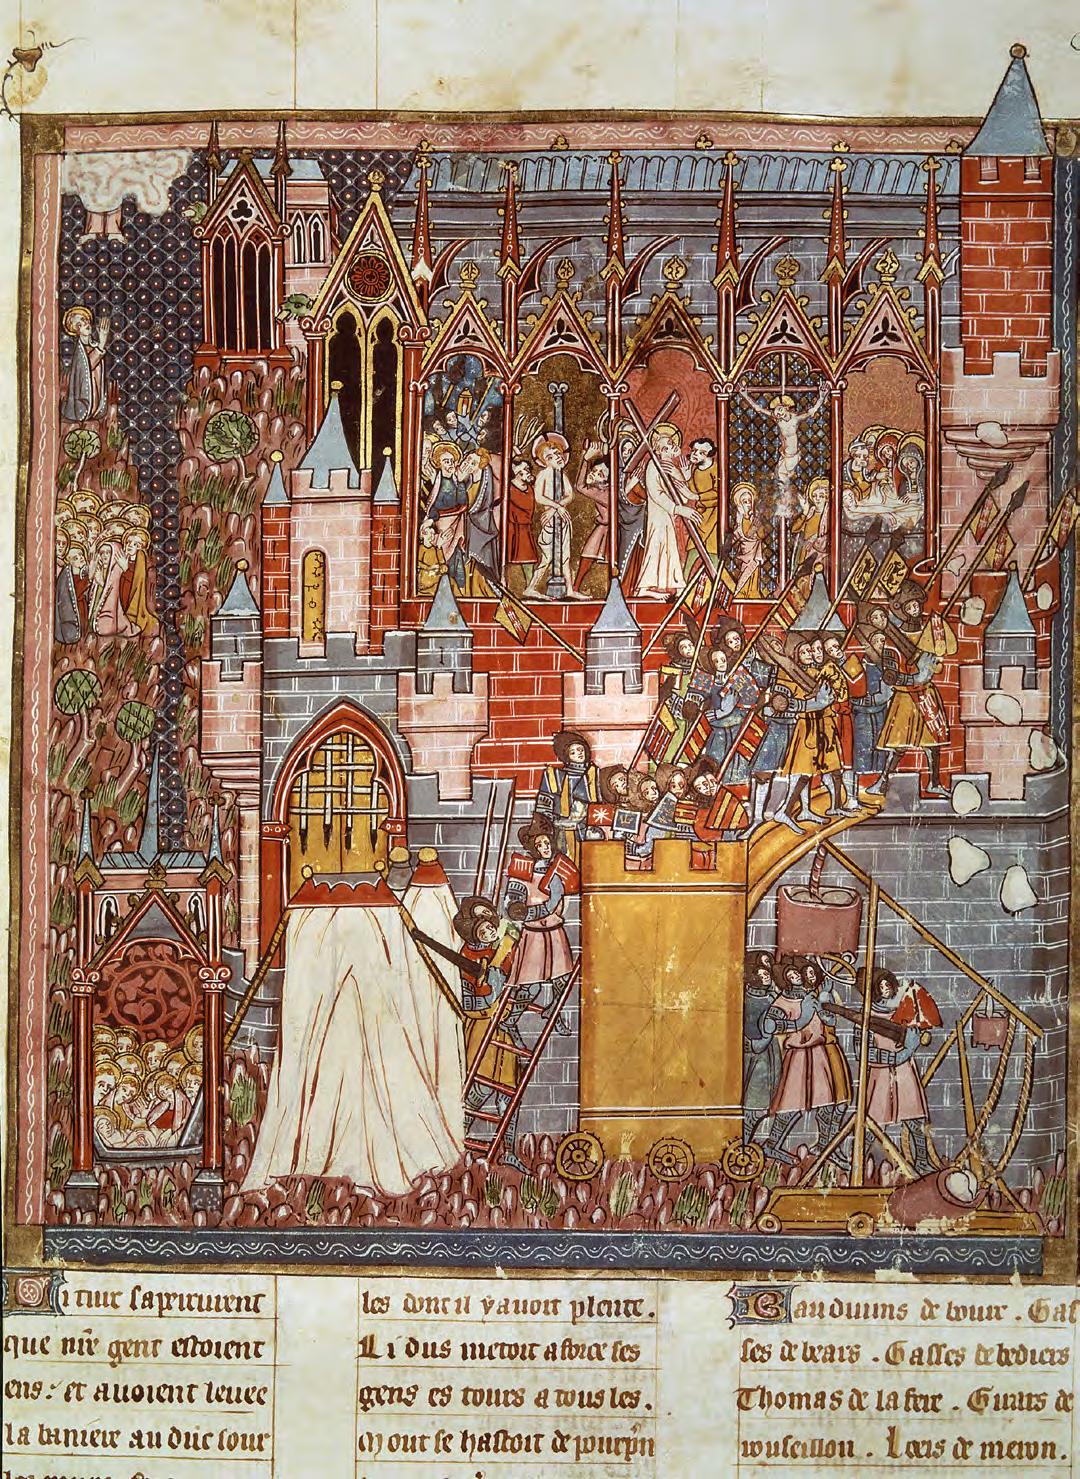 Li turc saperciurent
que nr̄e gent estoient
ens. et avoient levee
la baniere au duc sour
les dont il y avoit plente.
Li dus metoit a force ses
gens es tours a tous les.
Mout se hastoit de pourpn̄
Bauduins de bourc. Gas
ses de bears. Gasses de bediers
Thomas de la fere. Girars de
rouseillon. Loeis de